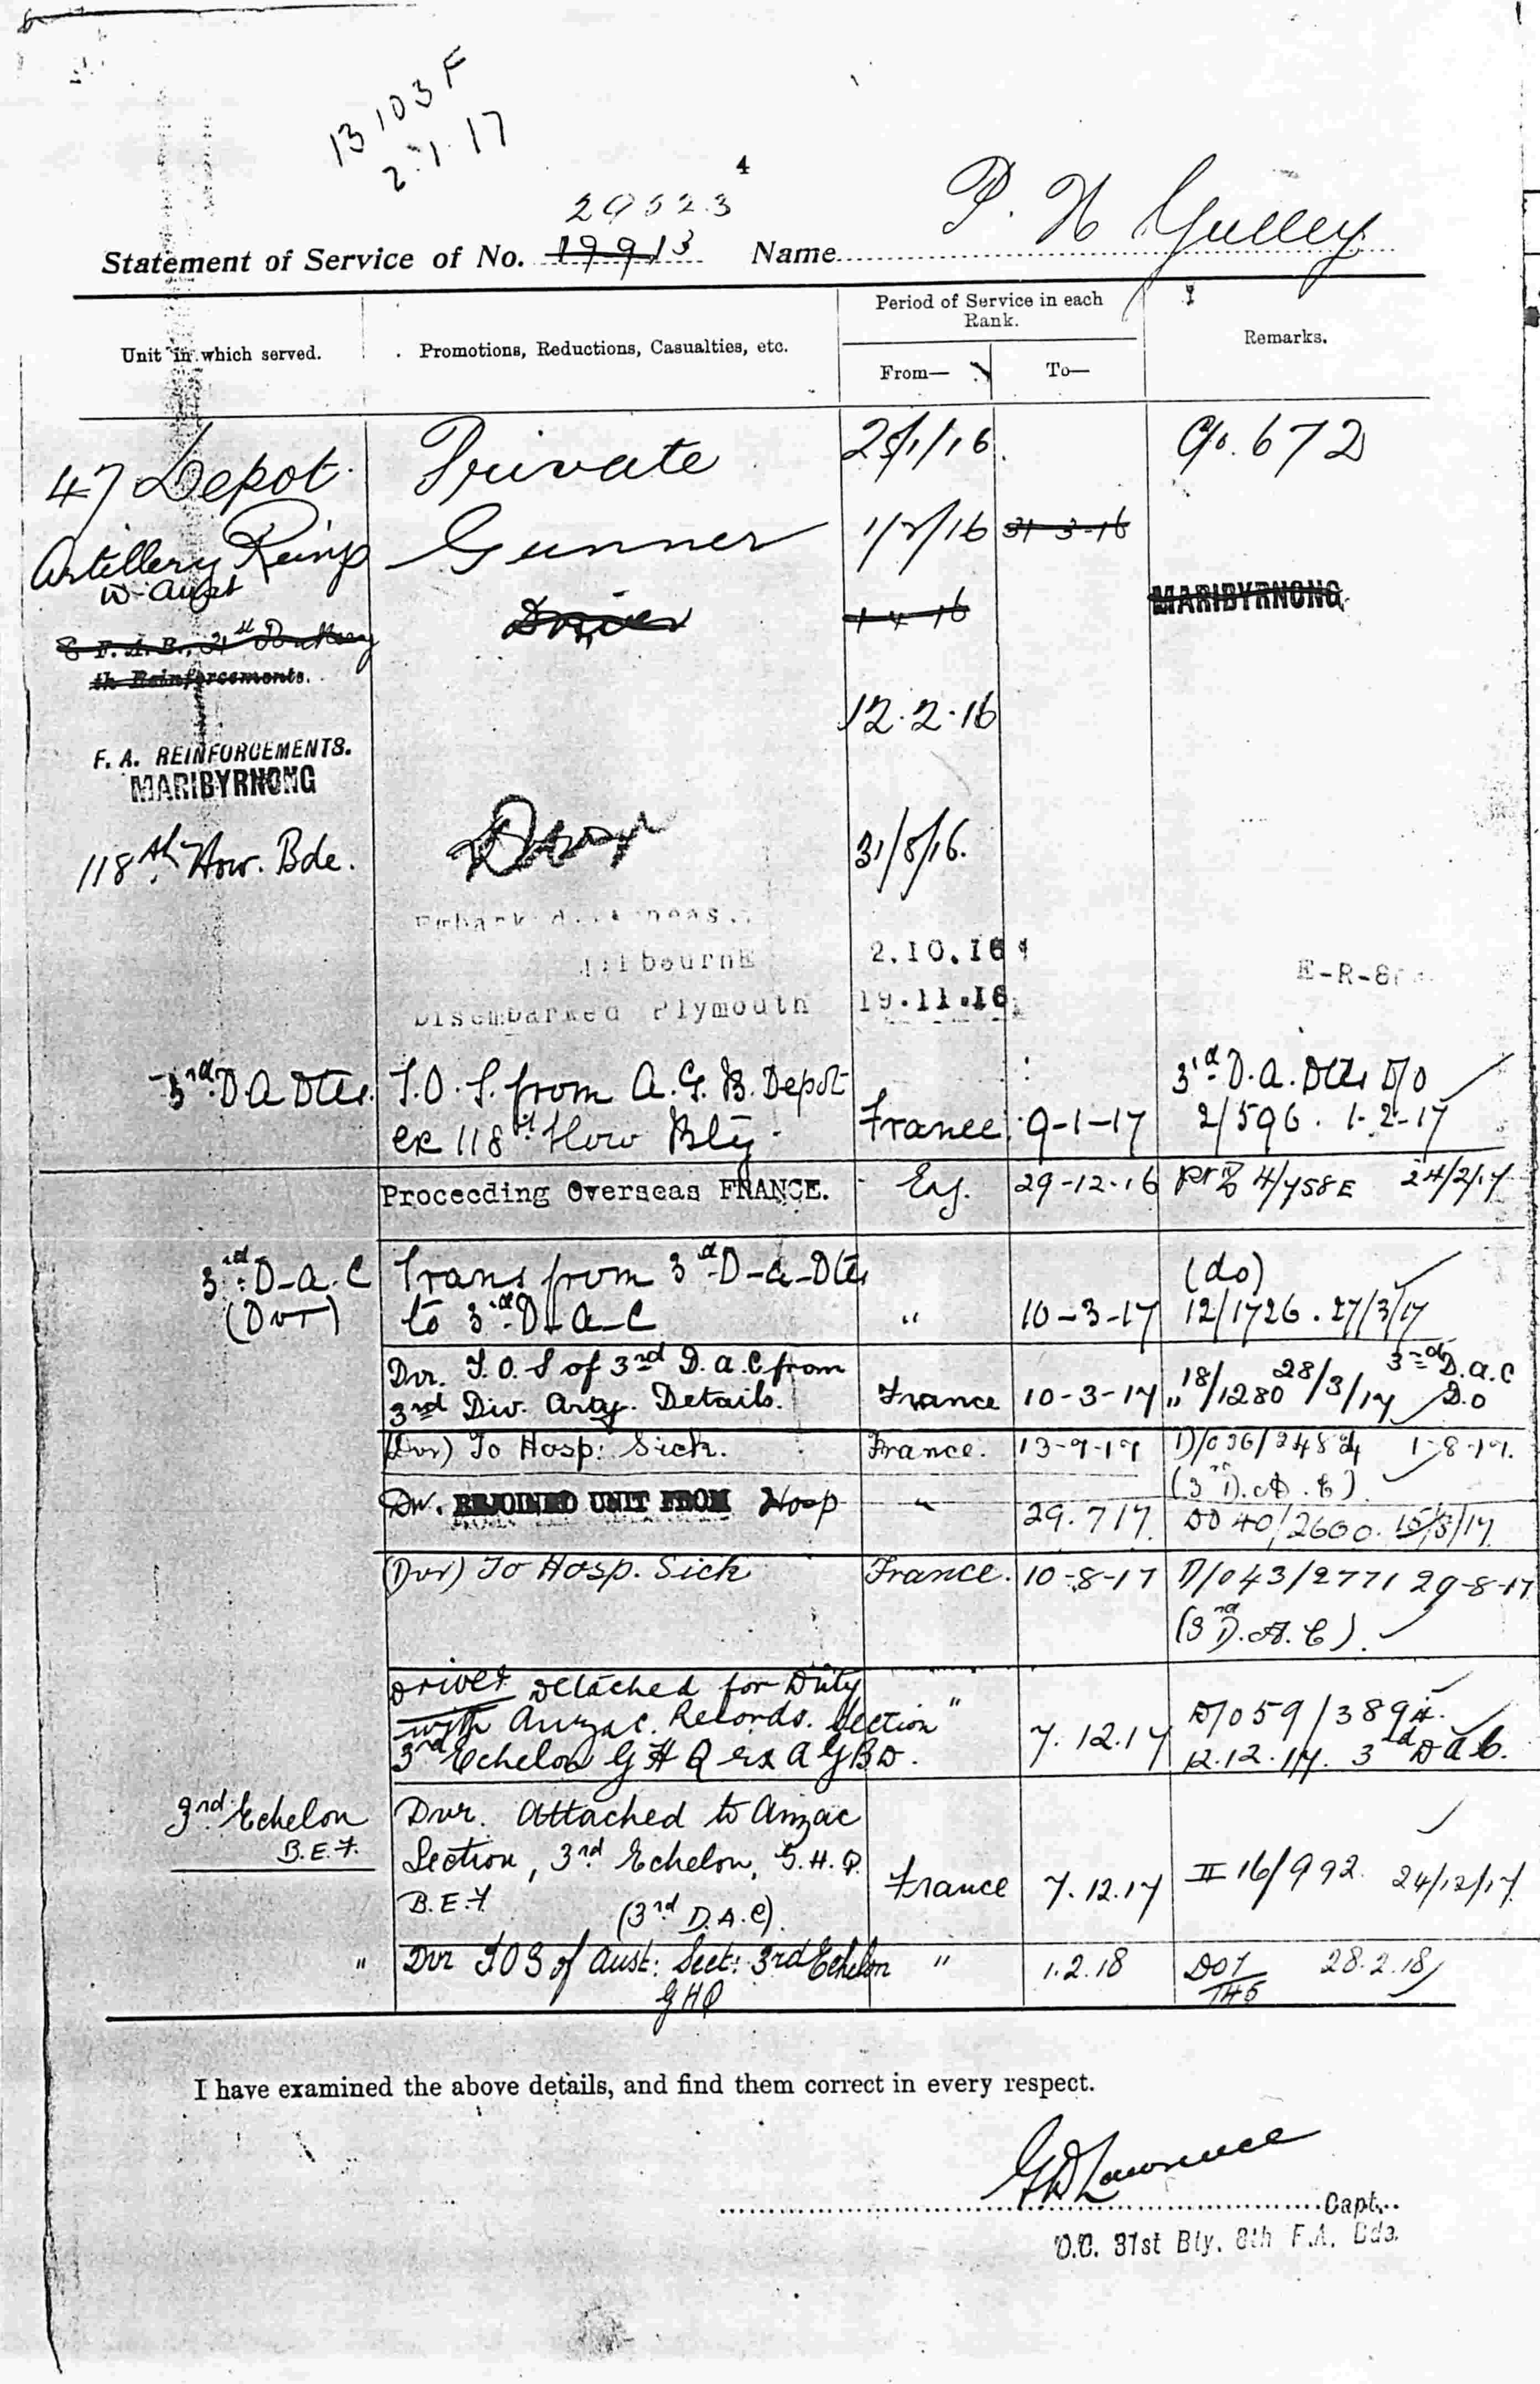 13103 F
2.1.17
4
29523
Statement of Service of No. 19913 Name P. H Gulley
Unit in which served. Promotions, Reductions, Casualties, etc. Period of Service in each Rank. From— To— Remarks.
47 Depot Private /1/16 672
Artillery Reinfs Gunner 1/2/16 31-3-16
W-Aust
Driver 1-4-16 MARIBYRNONG
8 F.A.B., 31st Battery
th Reinforcements.
12.2.16
F. A. REINFORCEMENTS.
MARIBYRNONG
118th How. Bde. Dvr 31/8/16.
2.10.16 E-R-8
Disembarked Plymouth 19.11.16
3rd D A Dtls. T.O.S. from A.G.B. Depot 3rd D.A. Dtls D/O
ex 118th How Bty France 9-1-17 2/596. 1-2-17
Proceeding Overseas FRANCE. Eng. 29-12-16 4/758E 24/2/17
3rd D-A-C Trans from 3rd D-A-Dtls (do)
(Dvr) to 3rd D-A-C " 10-3-17 12/1726. 27/3/17
Dvr. T.O.S of 3rd D.A.C from 3rd D.A.C
3rd Div. Arty. Details. France 10-3-17 " 18/1280 28/3/17 D.O
(Dvr) To Hosp: Sick. France. D/O36/
(3rd D.A.C).
Dvr. REJOINED UNIT FROM Hosp " 29.7.17. DO 40/2600. 15/8/17
(Dvr) To Hosp. Sick France. 10-8-17 D/O43/2771 29-8-17
(3rd D.A.C).
Driver Detached for Duty
with Anzac. Records. Section " D/O59/3894.
3rd Echelon G H Q ex A G B D. 7.12.17 12.12.17. 3rd D A C.
3rd Echelon Dvr. Attached to Anzac
B.E.F. Section, 3rd Echelon, G.H.Q.
B.E.F (3rd D.A.C). France 7.12.17 II 16/992. 24/12/17
" Dvr TOS of Aust: Sect: 3rd Echelon " 1.2.18 28.2.18
GHQ
I have examined the above details, and find them correct in every respect.
G D Lawrence
Capt.
O.C. 31st Bty. 8th F.A. Bde.